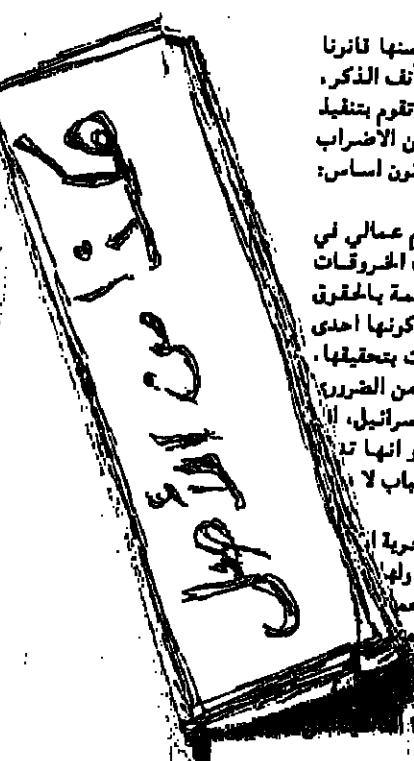 هكذا من الأول
سنها قانونا
آنف الذكر.
تقوم بتنفيذ
ن الاضراب
نون اساس:
م عمالي في
الخروقات
مة بالحقوق
كونها احدى
ت بتحقيقها.
من الضروري
سرائيل، ا
و انها تد
باب لا
حرية ا
ولها